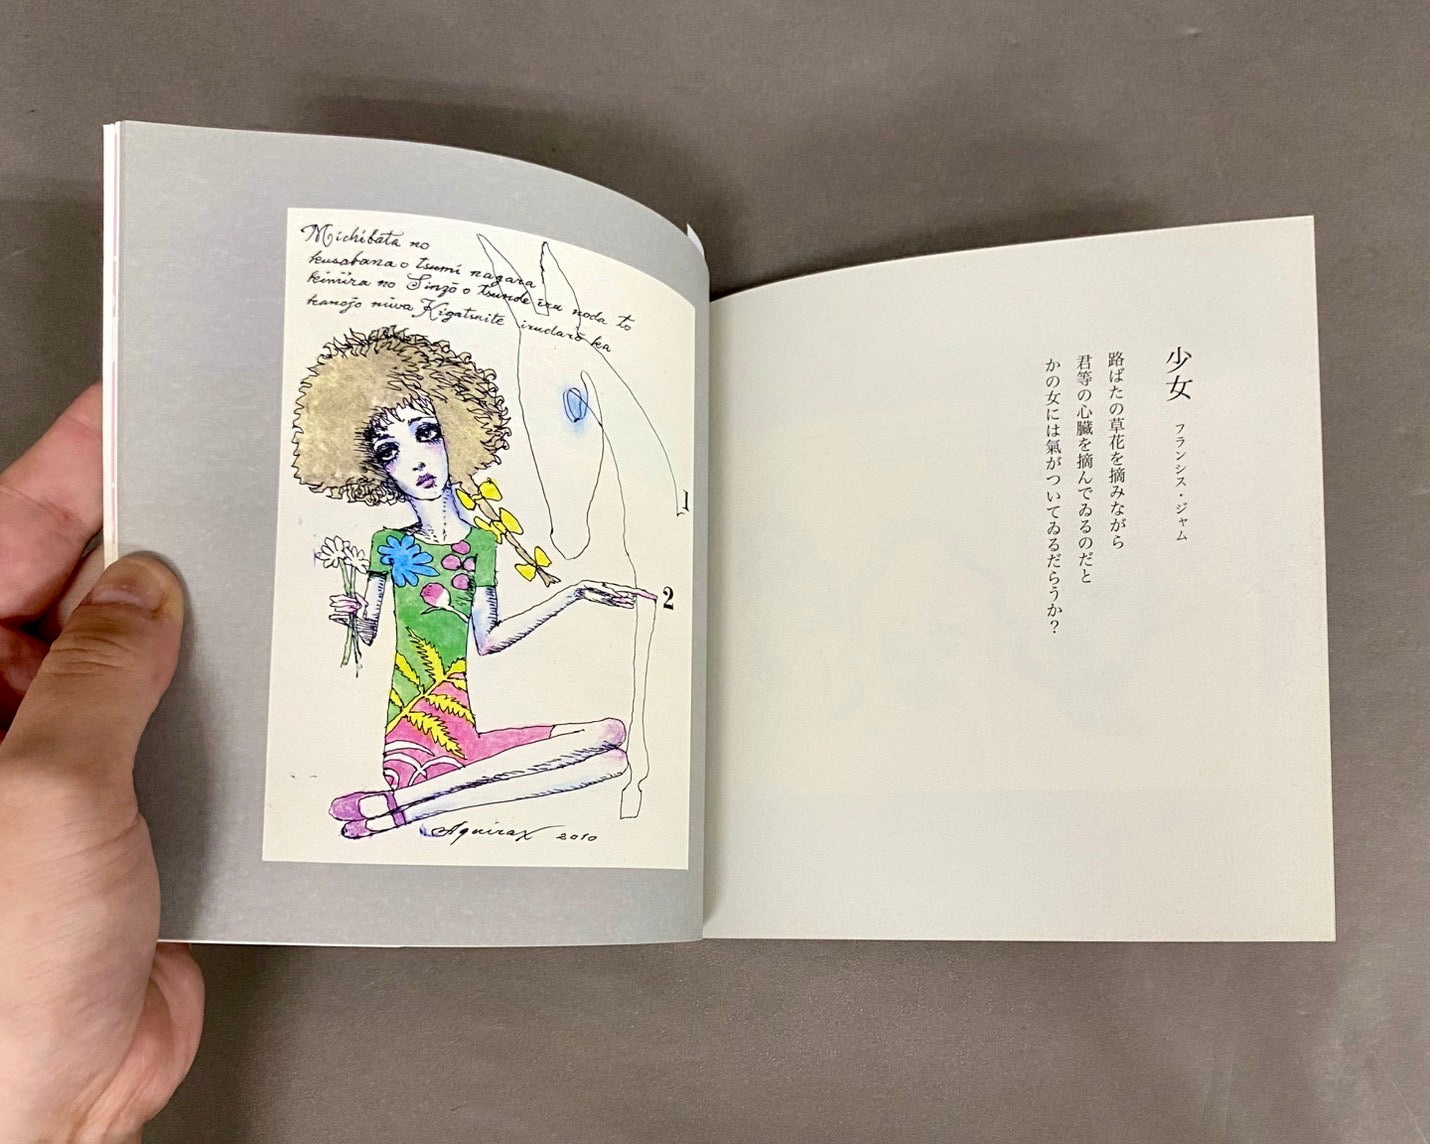 Michibata no
kusabana o tsumi nagara
kimira no Sinzō o tsunde iru noda to
kanojo niwa Kigatsuite irudarō ka
1
2
Aquirax 2010
少女
フランシス・ジャム
路ばたの草花を摘みながら
君等の心臓を摘んでゐるのだと
かの女には氣がついてゐるだらうか？